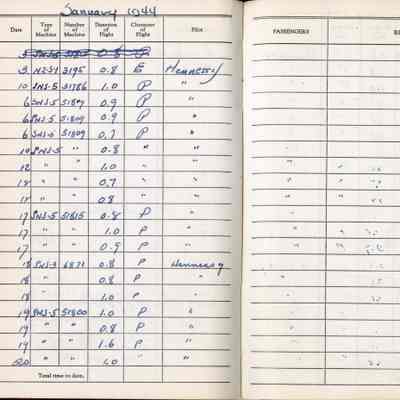 January 1944
Date Type of Machine Number of Machine Duration of Flight Character of Flight Pilot PASSENGERS
5 0.8 P
5 3195 0.8 E Hennessy
10 SNJ-5 51786 1.0 P "
6 SNJ-5 51809 0.9 P "
6 SNJ-5 51809 0.9 P "
6 SNJ-5 51809 0.7 P "
SNJ-5 " 0.8 " "
12 " " 1.0 " "
" " 0.7 " "
" " 0.8 " "
17 SNJ-5 51815 0.8 P "
17 " " 1.0 P "
17 " " 0.9 P "
18 6871 0.8 P Hennessy
18 " 0.8 P "
18 " 1.0 P "
19 SNJ-5 51800 1.0 P "
19 " " 0.8 P "
19 " " 1.6 P "
20 " " 1.0 " "
Total time to date,